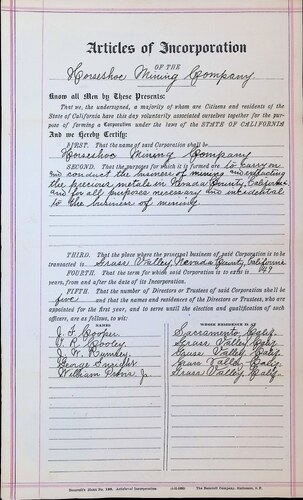 Articles of Incorporation
OF THE
Horseshoe Mining Company.
Know all Men by These Presents:
That we, the undersigned, a majority of whom are Citizens and residents of the
State of California have this day voluntarily associated ourselves together for the pur-
pose of forming a Corporation under the laws of the STATE OF CALIFORNIA
And we Hereby Certify:
FIRST. That the name of said Corporation shall be
Horseshoe Mining Company
SECOND. That the purposes for which it is formed are to carry on
and conduct the business of mining and extracting
the precious metals in Nevada County, California
and for all purposes necessary and incidental
to the business of mining.
THIRD. That the place where the principal business of said Corporation is to be
transacted is Grass Valley, Nevada County, California
FOURTH. That the term for which said Corporation is to exist is 49
years, from and after the date of its Incorporation.
FIFTH. That the number of Directors or Trustees of said Corporation shall be
five and that the names and residences of the Directors or Trustees, who are
appointed for the first year, and to serve until the election and qualification of such
officers, are as follows, to wit:
NAMES WHOSE RESIDENCE IS AT
Cooper Sacramento Calif.
Cooley Grass Valley Calif.
J. W. Grass Valley Calif.
George Grass Valley Calif.
William Jr. Grass Valley Calif.
Articles of Incorporation
Company,